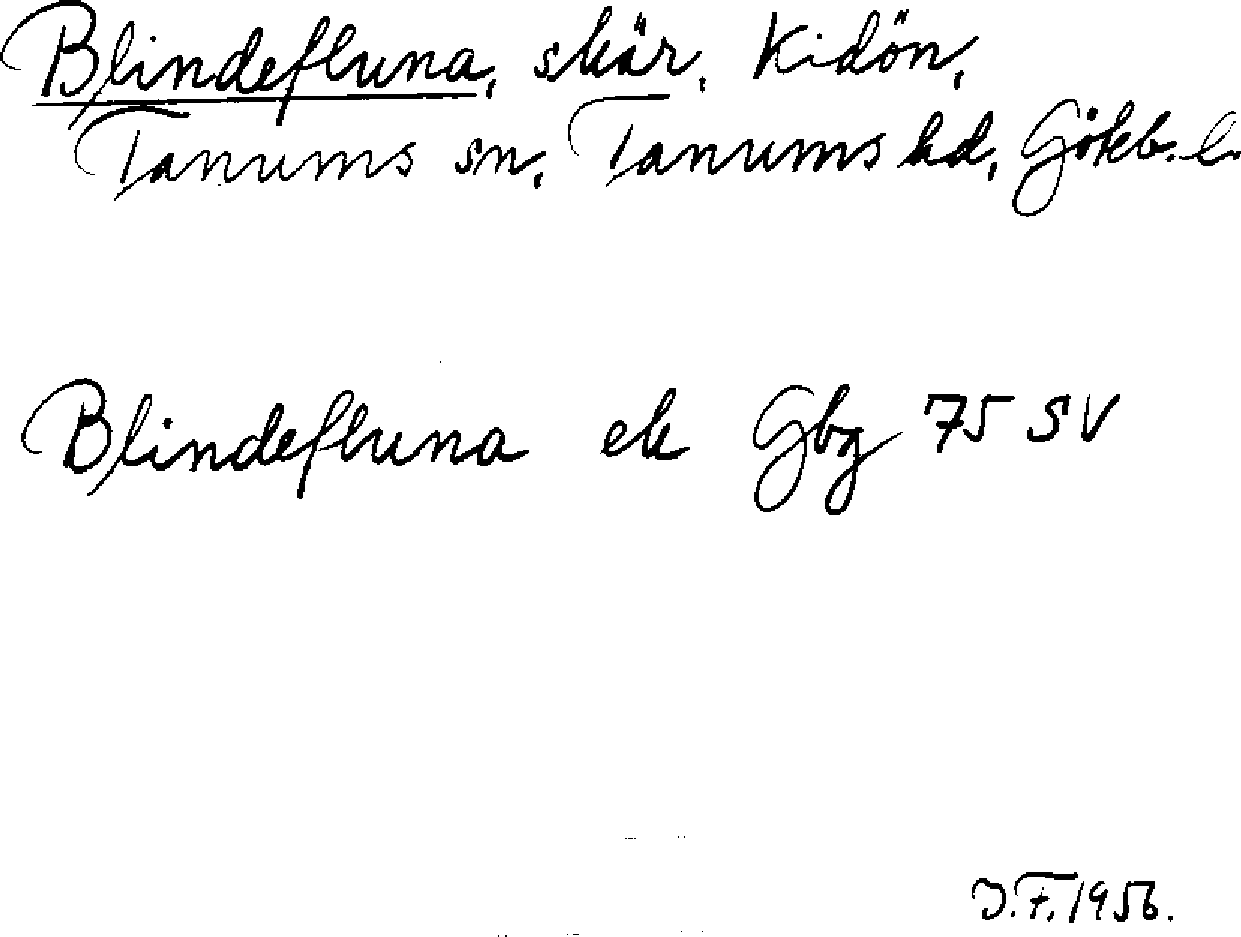 Blindefluna, skär, Kidön,
Tanums sn, Tanums hd, Göteb. l.
Blindefluna ek Gbg 75 SV
J.F. 1956.